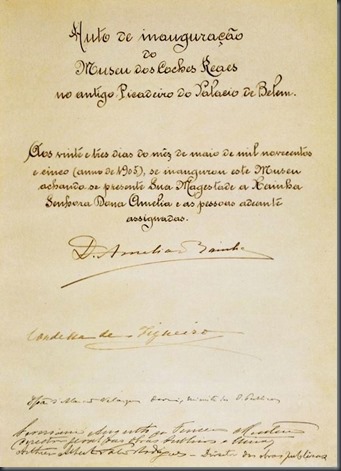 Auto de inauguração
do
Museu dos Coches Reaes
no antigo Picadeiro do Palacio de Belem.
Aos vinte e tres dias do mez de maio de mil novecentos
e cinco (anno de 1905), se inaugurou este Museu
achando se presente Sua Magestade a Rainha
Senhora Dona Amelia e as pessoas adeante
assignadas.
D. Amelia Rainha
Condessa de Figueiro
D. Publicas
Augusto
Director das obras publicas